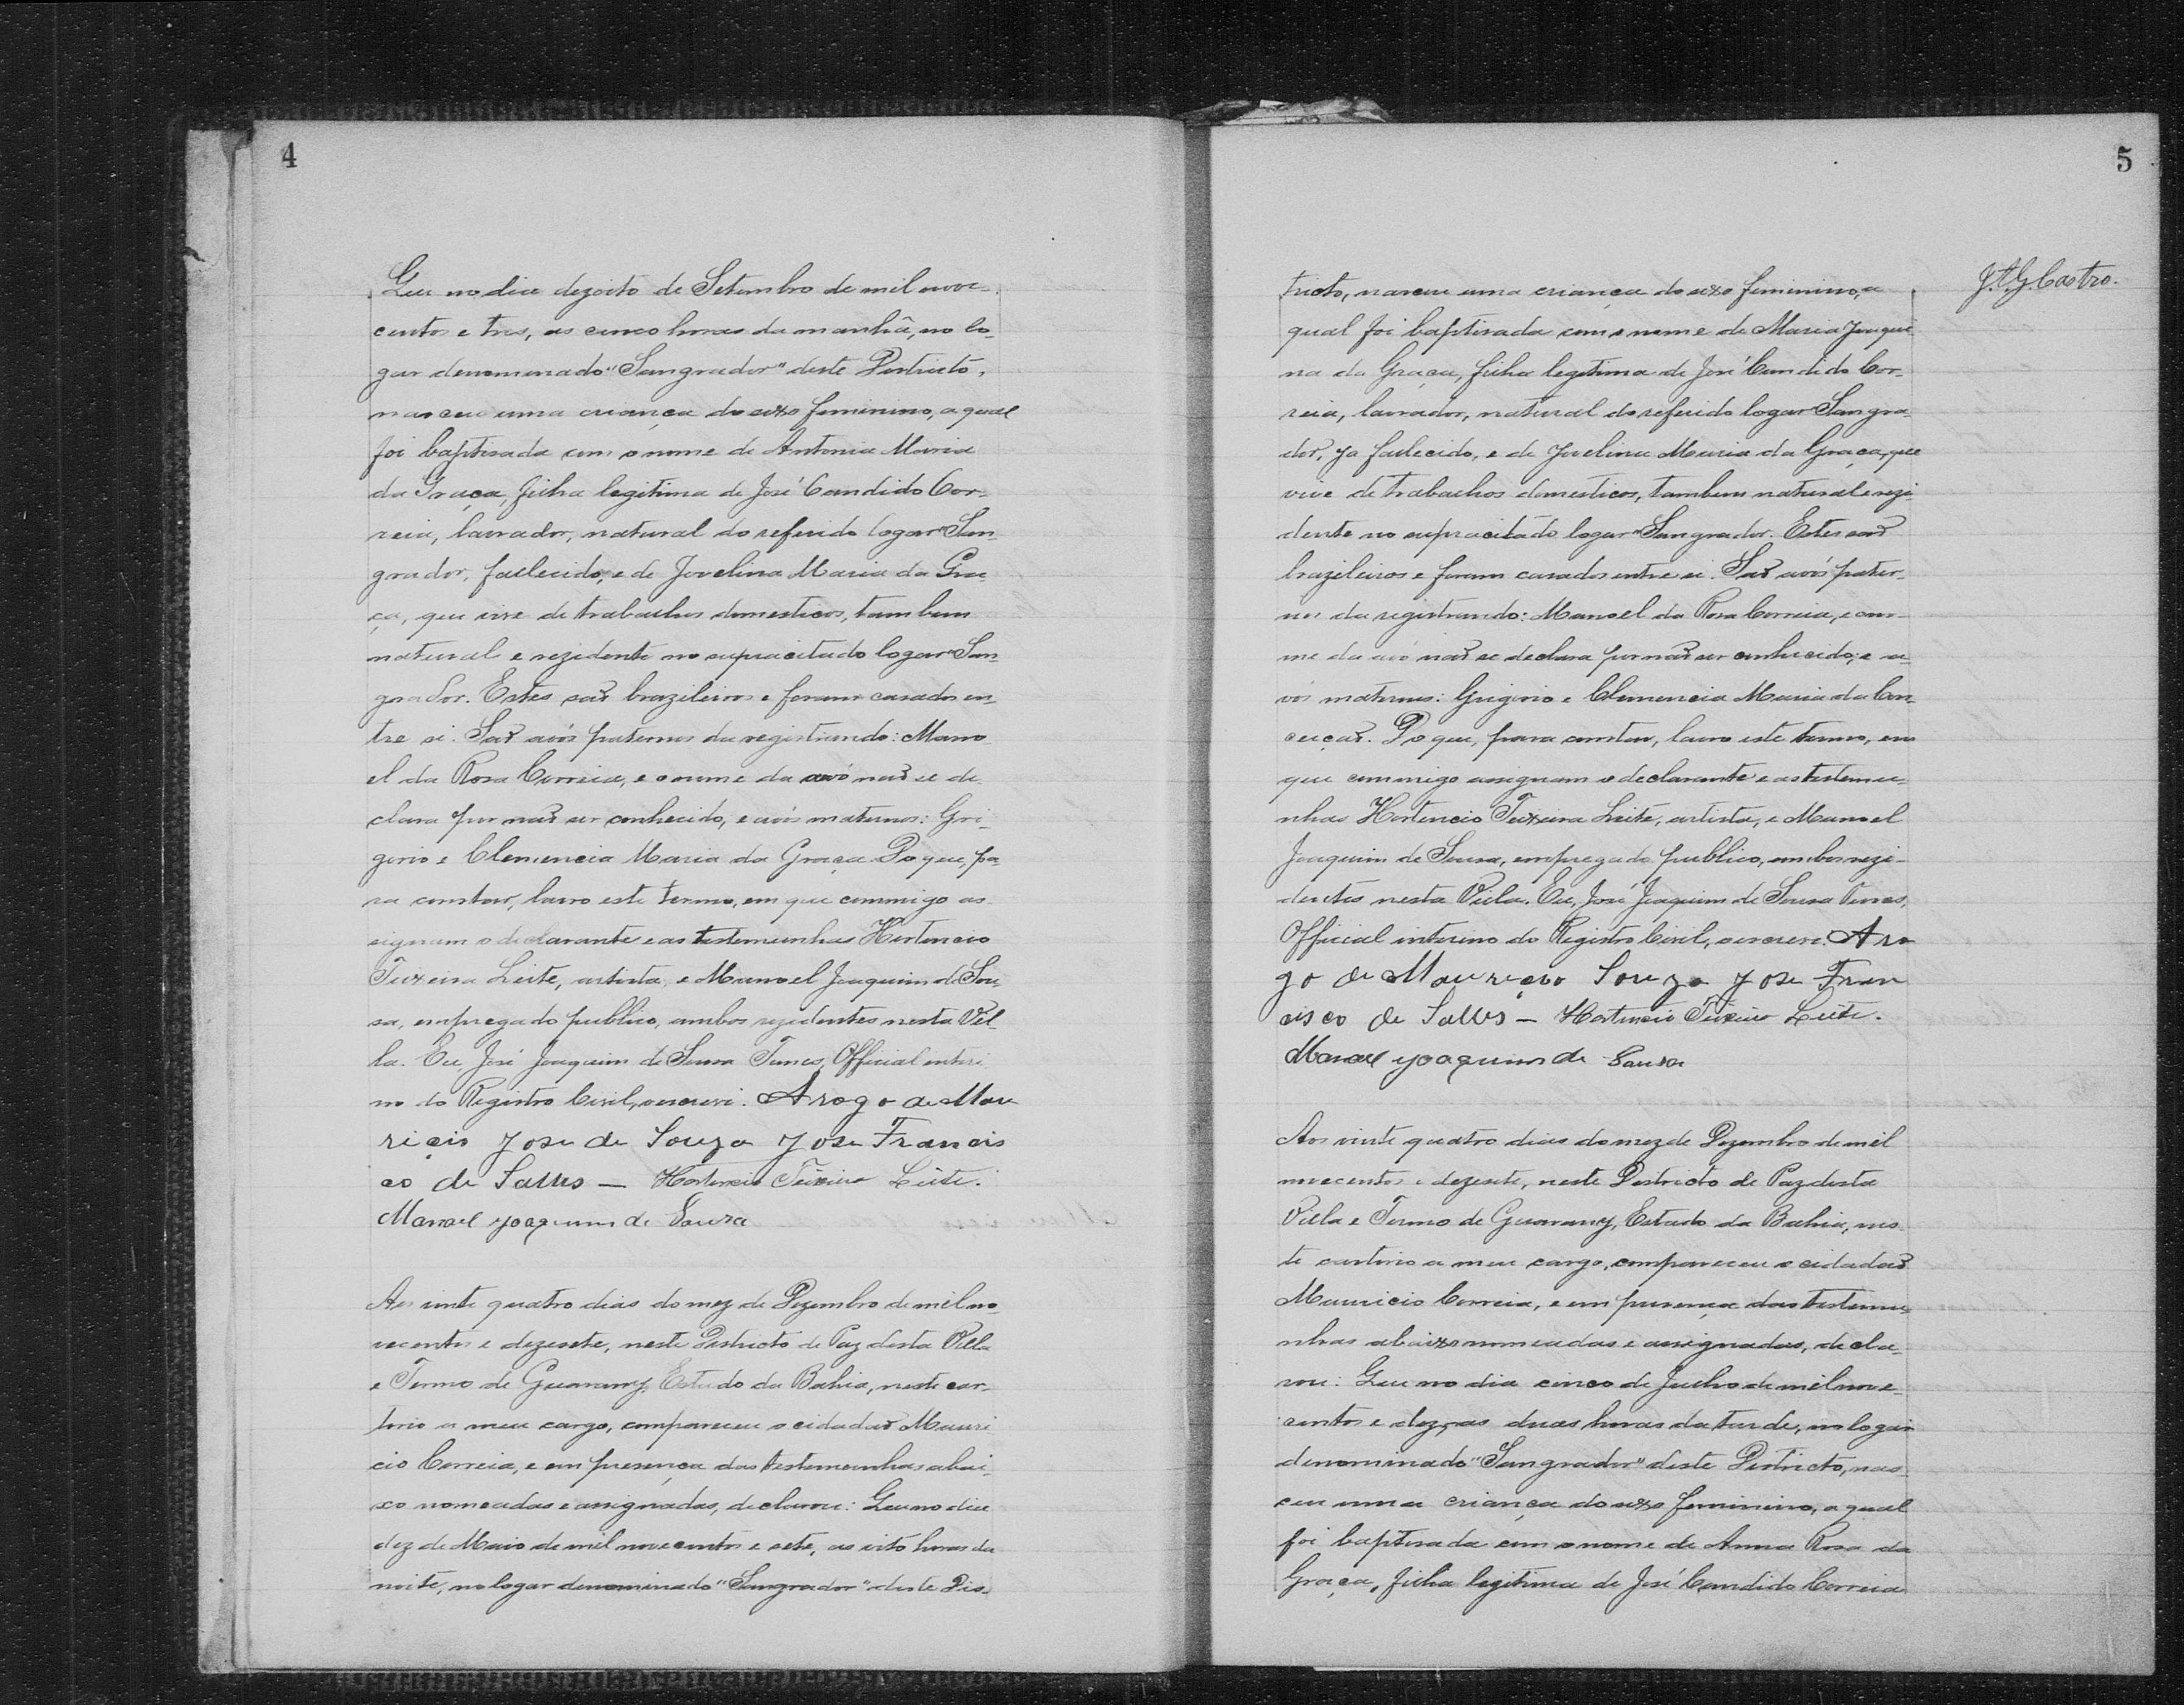 4
Que no dia dezoito de Setembro de mil nove-
centos e tres, as cinco horas da manhã, no lo-
gar denominado "Sangrador" deste Districto,
nasceu uma criança do sexo feminino, a qual
foi baptisada com o nome de Antonia Maria
da Graça, filha legitima de José Candido Cor-
reia, lavrador, natural do referido logar "San-
grador, fallecido, e de Jovelina Maria da Gra-
ça, que vive de trabalhos domesticos, tambem
natural e rezidente no supracitado logar "San-
grador. Estes são brazileiros e foram casados en-
tre si. São avós paternos da registrando: Mano-
el da Rosa Correia, e o nome da avó não se de-
clara por não ser conhecido; e avós maternos: Gri-
gorio e Clemencia Maria da Graça. Do que, pa-
ra constar, lavro este termo, em que commigo as-
signam o declarante e as testemunhas Hortencio
Teixeira Leite, artista, e Manoel Joaquim de Sou-
sa, empregado publico, ambos rezidentes nesta Vil-
la. Eu, José Joaquim de Sousa Official interi-
no do Registro Civil, o escrevi. Arogo de Mau
ricio Jose de Souza Jose Francis
co de Salles — Hortencio Teixeira Leite.
Manoel Joaquim de Souza
Aos vinte quatro dias do mez de Dezembro de mil no-
vecentos e dezesete, neste Districto de Paz desta Villa
e Termo de Guarany, Estado da Bahia, neste car-
torio a meu cargo, compareceu o cidadão Mauri-
cio Correia, e em presença das testemunhas abai-
xo nomeadas e assignadas, declarou: Que no dia
dez de Maio de mil novecentos e sete, as oito horas da
noite, no logar denominado "Sangrador" deste Dis-
5
J. A. G. Castro.
tricto, nasceu uma criança do sexo feminino, a
qual foi baptisada com o nome de Maria Joaqui-
na da Graça, filha legitima de José Candido Cor-
reia, lavrador, natural do referido logar "Sangra-
dor, ja fallecido, e de Jovelina Maria da Graça, que
vive de trabalhos domesticos, tambem natural e rezi-
dente no supracitado logar "Sangrador. Estes são
brazileiros e foram casados entre si. São avós pater-
nos da registrando: Manoel da Rosa Correia, e o no-
me da avó não se declara por não ser conhecido; e a-
vós maternos: Grigorio e Clemencia Maria da Con-
ceição. Do que, para constar, lavro este termo, em
que commigo assignam o declarante e as testemu-
nhas Hortencio Teixeira Leite, artista, e Manoel
Joaquim de Sousa, empregado publico, ambos rezi-
dentes nesta Villa. Eu, José Joaquim de Sousa
Official interino do Registro Civil, o escrevi. Aro
go de Mauricio Souza Jose Fran
cisco de Salles — Hortencio Teixeira Leite.
Manoel Joaquim de Souza
Aos vinte quatro dias do mez de Dezembro de mil
novecentos e dezesete, neste Districto de Paz desta
Villa e Termo de Guarany, Estado da Bahia, nes-
te cartorio a meu cargo, compareceu o cidadão
Mauricio Correia, e em presença das testemu-
nhas abaixo nomeadas e assignadas, decla-
rou: Que no dia cinco de Julho de mil nove-
centos e dez, as duas horas da tarde, no logar
denominado "Sangrador" deste Districto, nas-
ceu uma criança do sexo feminino, a qual
foi baptisada com o nome de Anna Rosa da
Graça, filha legitima de José Candido Correia